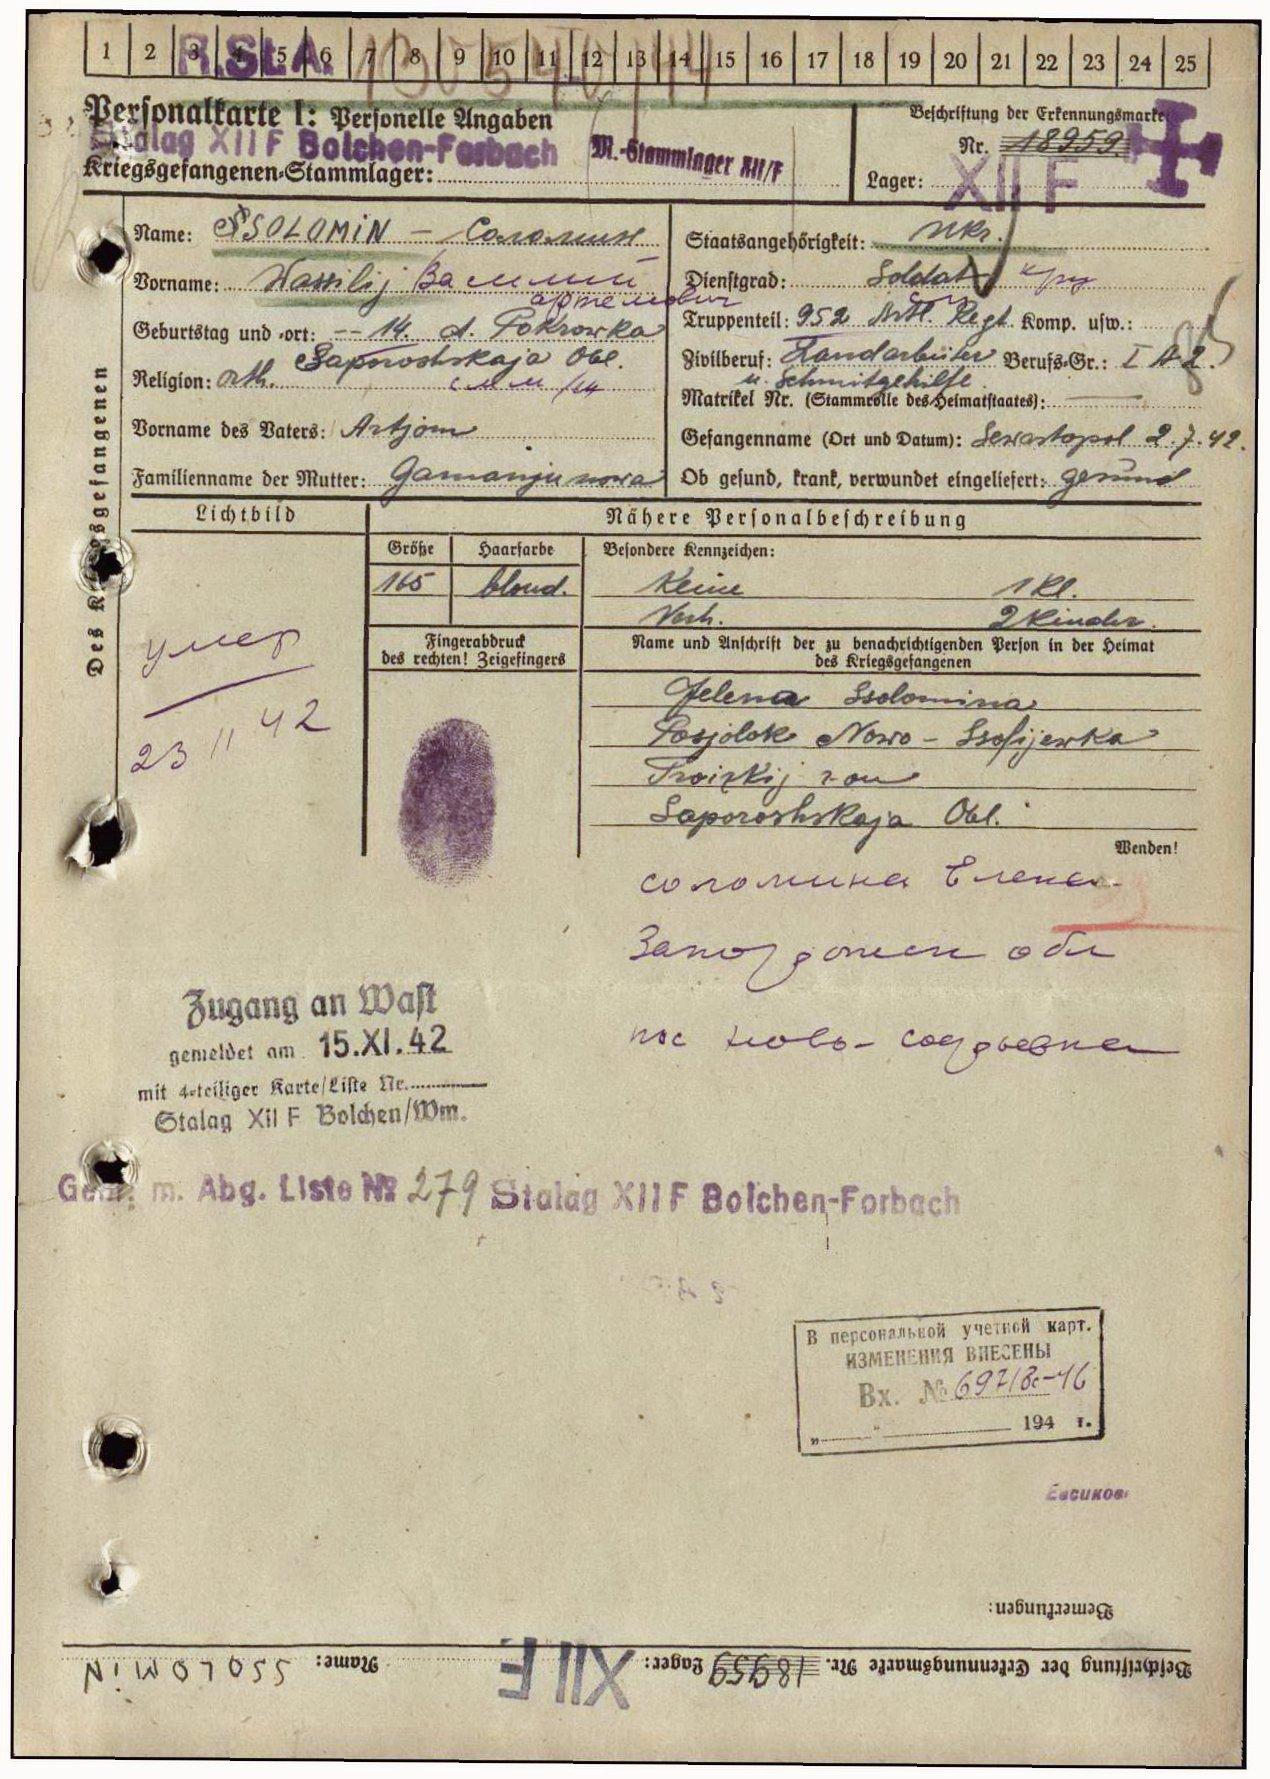 1 2 3 4 5 6 7 8 9 10 11 12 13 14 15 16 17 18 19 20 21 22 23 24 25
R.St.A.
Personalkarte I: Personelle Angaben
Stalag XII F Bolchen-Forbach
M.-Stammlager XII/F
Kriegsgefangenen-Stammlager:
Beschriftung der Erkennungsmarke
Nr. 18959.
Lager: XII F
Des Kriegsgefangenen
Name: SSOLOMIN – Соломин
Vorname: Wassilij Василий
Артемович
Geburtstag und -ort: -- 14. d. Pokrowka
Saporoshskaja Obl.
Religion: orth.
Vorname des Vaters: Artjom
Familienname der Mutter:
Staatsangehörigkeit: Ukr.
Dienstgrad: Soldat
Truppenteil: 952 Artl. Regt Komp. usw.:
Zivilberuf: Landarbeiter Berufs-Gr.: I A 2.
u. Schmitgehilfe
Matrikel Nr. (Stammrolle des Heimatstaates):
Gefangenname (Ort und Datum): Sewastopol 2.7.42.
Ob gesund, krank, verwundet eingeliefert: gesund
Lichtbild
умер
23 11 42
Nähere Personalbeschreibung
Größe Haarfarbe Besondere Kennzeichen:
165 blond. Keine 1 Kl.
Verh. 2 Kinder.
Fingerabdruck
des rechten! Zeigefingers
Name und Anschrift der zu benachrichtigenden Person in der Heimat
des Kriegsgefangenen
Jelena Ssolomina
Posjolok Nowo-Ssofijewka
Troizkij ron
Saporoshskaja Obl.
Wenden!
Соломина Елена
Запорожск обл
пос Ново-Софьевка
Zugang an Wast
gemeldet am 15.XI.42
mit 4-teiliger Karte/Liste Nr.
Stalag XII F Bolchen/Wm.
Gem. m. Abg. Liste № 279 Stalag XII F Bolchen-Forbach
В персональной учетной карт.
ИЗМЕНЕНИЯ ВНЕСЕНЫ
Вх. № 697/8с-46
„ " 194 г.
Евсиков
Bemerkungen:
Beschriftung der Erkennungsmarke Nr. 18959 Lager: XII F Name: SSOLOMIN